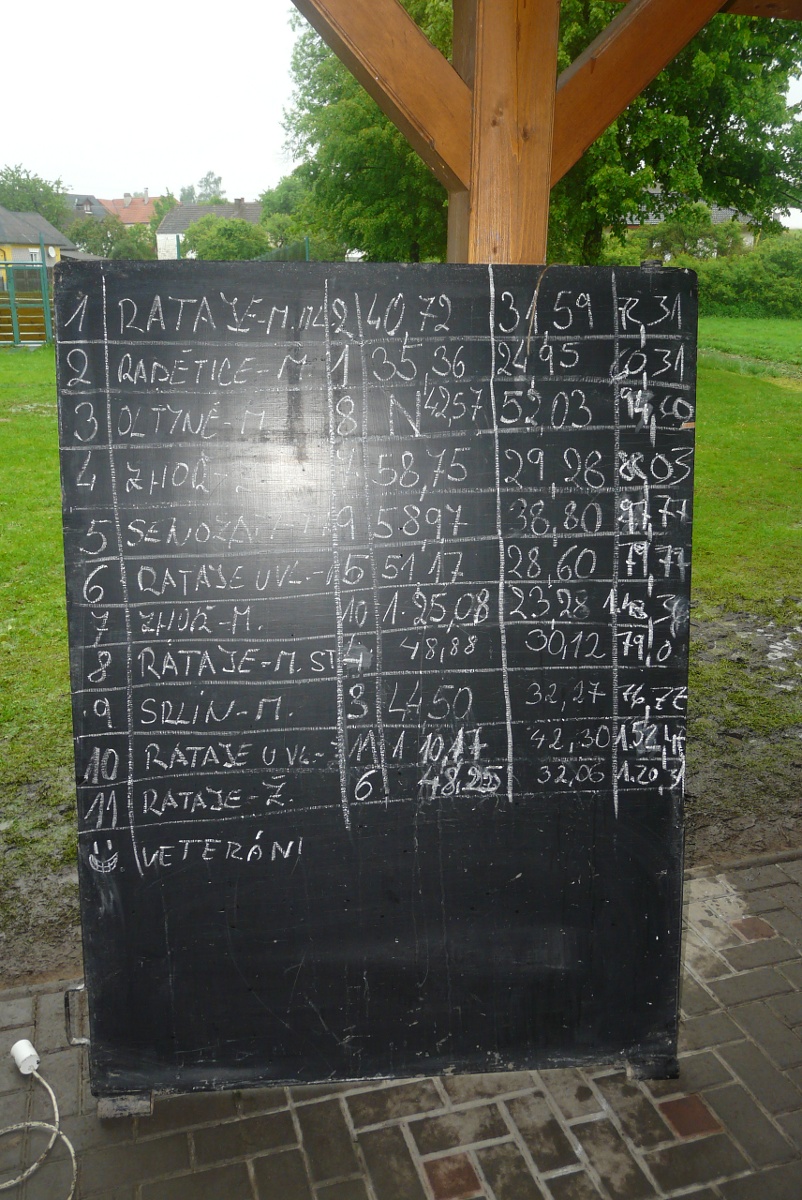 1 RATAJE-M. 2 40,72 31,59 72,31
2 RADĚTICE-M. 1 35,36 24,95 60,31
3 OLTYNĚ-M 8 N 42,57 52,03
4 ZHOŘ- 58,75 29,28 03
5 9 58 97 38,80 77
6 RATAJE U VL.- 5 51,17 28,60 79,77
7 ZHOŘ-M. 10 1.25,08 23,28
8 RATAJE-M. ST 4 48,88 30,12 79,0
9 SRLÍN-M. 3 44,50 32,27 76,77
10 RATAJE U VL.- 11 1 10,17 42,30 1.52,4
11 RATAJE-Ž. 6 48,25 32,06 1.20,31
VETERÁNI